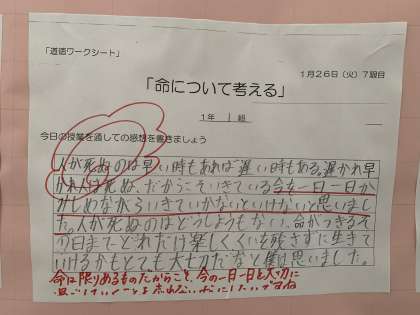 「道徳ワークシート」
1月26日（火）7限目
「命について考える」
1年 1組
今日の授業を通しての感想を書きましょう
人が死ぬのは早い時もあれば遅い時もある。遅かれ早
かれ人は死ぬ、だからこそいきている今を一日一日か
みしめながらいきていかないといけないと思いまし
た。人が死ぬのはどうしようもない、命がつきるそ
の日までどれだけ楽しくくいを残さずに生きて
いけるかもとても大切だなと僕は思いました。
命は限りあるものだからこそ、今の一日一日を大切に
過ごしていくことを忘れないようにしたいですね